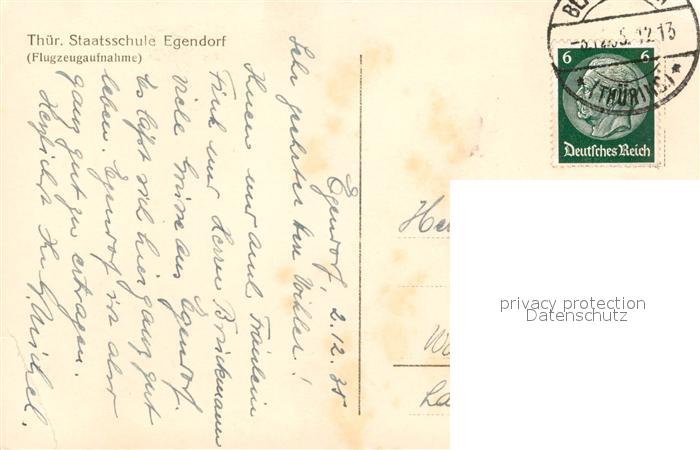 Thür. Staatsschule Egendorf
(Flugzeugaufnahme)
Egendorf. 2.12.35
Sehr geehrter Herr
Ihnen und
Frau und Herrn Brinkmann
Viele Grüße aus Egendorf.
Es läßt sich hier ganz gut
leben. Egendorf ist aber
ganz gut zu ertragen.
Herzlichst Ihr
6 6
Deutsches Reich
12.13
(THÜRING.)
privacy protection
Datenschutz